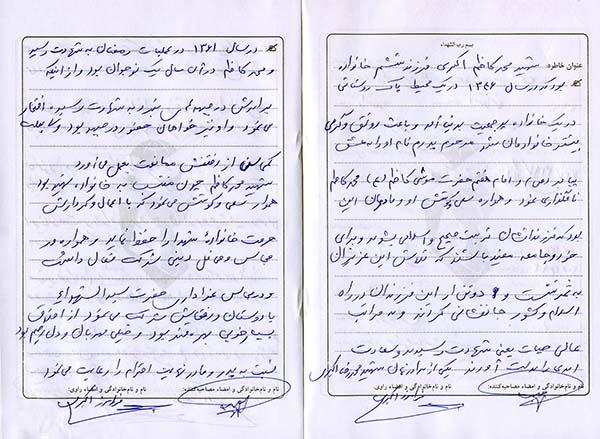 بسم رب الشهداء
عنوان خاطره: شهید محمد کاظم اکبری فرزند ششم خانواده
بود که در سال ۱۳۴۶ در یک محیط پاک روستائی
در یک خانواده پرجمعیت بدنیا آمد و باعث رونق و گرمی
بیشتر خانواده مان شد مرحوم پدرم نام او را به عشق
امام هفتم حضرت موسی کاظم (ع) محمد کاظم
نامگذاری نمود و همواره سعی او و مادرمان این
بود که فرزندانشان تربیت صحیح و اسلامی بشوند و برای
جامعه مفید باشند که تلاش این عزیزان
به ثمر نشست و دو تن از این فرزندان در راه
اسلام و کشور جانفشانی کردند و به مراتب
عالی حیات یعنی شهادت رسیدند و سعادت
ابدی را بدست آوردند یکی از برادرانمان شهید محمدرضا اکبری
نام و نام خانوادگی و امضاء مصاحبه کننده:
نام و نام خانوادگی و امضاء راوی:
در سال ۱۳۶۱ در عملیات رمضان به شهادت رسید
و محمد کاظم در آن سال یک نوجوان بود و از اینکه
برادرش در جبهه به شهادت رسیده افتخار
می نمود و او نیز خواهان حضور در جبهه بود
کمی سن از رفتنش ممانعت بعمل می آورد
شهید محمد کاظم چون منتسب به خانواده شهید بود
هموار سعی و کوشش می نمود که با اعمال و کردارش
حرمت خانواده شهدا را حفظ نماید و همواره در
مجالس و محافل دینی شرکت فعال داشت
و در مجالس عزاداری حضرت سیدالشهداء
با دوستان و رفقایش شرکت می نمود از اخلاق
بسیار خوبی بهره مند بود و خیلی مهربان و دل رحیم بود
نسبت به پدر و مادر نهایت احترام را رعایت می نمود
نام و نام خانوادگی و امضاء مصاحبه کننده:
نام و نام خانوادگی و امضاء راوی: